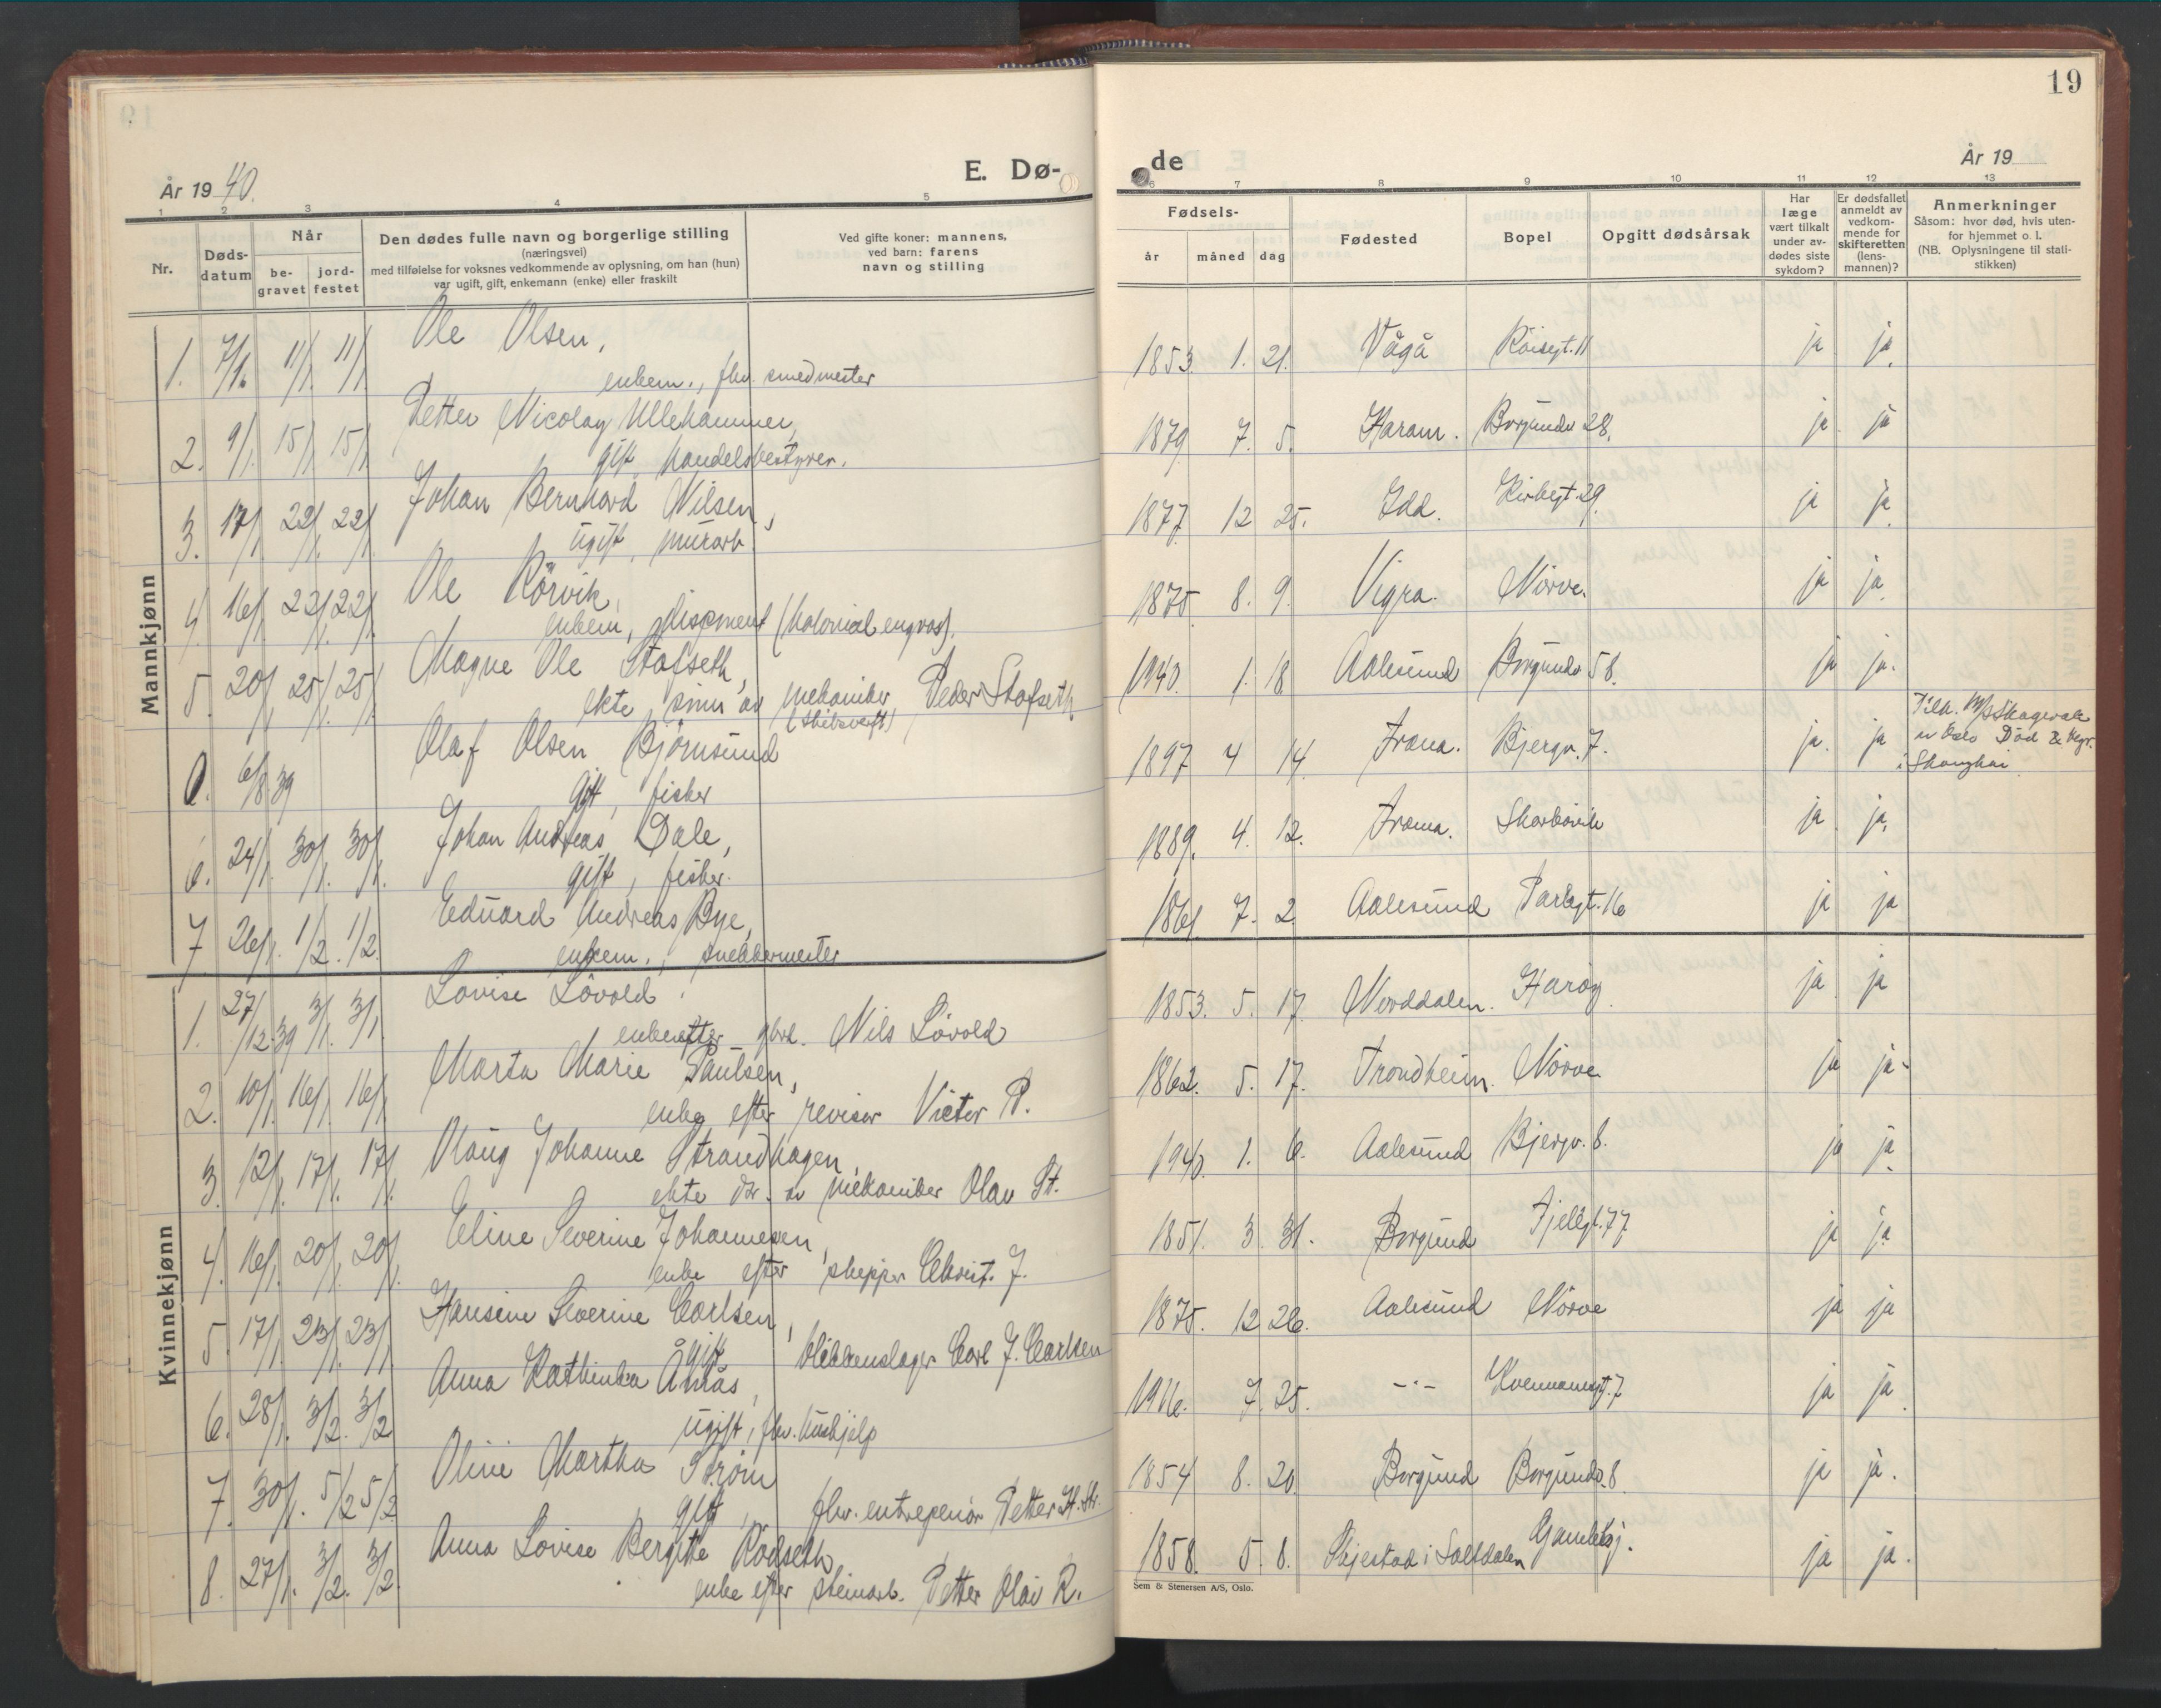 19
År 1940.
E. Dø-
de
År 19
1 2 3 4 5 6 7 8 9 10 11 12 13
Nr.
Døds-
datum
Når
be-
gravet
jord-
festet
Den dødes fulle navn og borgerlige stilling
(næringsvei)
med tilføielse for voksnes vedkommende av oplysning, om han (hun)
var ugift, gift, enkemann (enke) eller fraskilt
Ved gifte koner: mannens,
ved barn: farens
navn og stilling
Fødsels-
år måned dag
Fødested
Bopel
Opgitt dødsårsak
Har
læge
vært tilkalt
under av-
dødes siste
sykdom?
Er dødsfallet
anmeldt av
vedkom-
mende for
skifteretten
(lens-
mannen)?
Anmerkninger
Såsom: hvor død, hvis uten-
for hjemmet o. l.
(NB. Oplysningene til stati-
stikken)
Mannkjønn
1. 7/1. 11/1. 11/1. Ole Olsen, 1853. 1. 21. Vågå Røisegt. 11 ja ja.
enkem., fhv. smedmester
2. 9/1. 15/1. 15/1. Petter Nicolay Ullehammer, 1879 7. 5. Haram. Borgundv 28. ja ja
gift, handelsbestyrer.
3. 17/1. 22/1. 22/1. Johan Bernhard Nilsen, 1877 12 25. Idd. Kirkegt. 29. ja ja.
ugift, murarb.
4. 16/1. 22/1. 22/1. Ole Rörvik, 1875 8. 9. Vigra. Nörve. ja ja.
enkem, disponent (kolonial engros).
5. 20/1. 25/1. 25/1. Magne Ole Stafseth, 1940. 1. 18 Aalesund Borgundv 58. ja ja.
ekte sønn av mekaniker Peder Stafseth
0. 6/8 39 Olaf Olsen Björnsund 1897 4 14 Fræna. Bjergv. 7. ja. ja
gift, fisker
i Shanghai
6. 24/1. 30/1. 30/1. Johan Andreas Dale, 1889. 4. 12. Fræna. ja ja.
gift, fisker.
7 26/1. 1/2. 1/2. Eduard Andreas Bye, 1861. 7. 2. Aalesund Parkgt. 16 ja ja
enkem., snekkermester
Kvinnekjønn
1. 27/12.39 3/1. 3/1. Lovise Lövold, 1853. 5. 17. Norddalen. Haröy. ja ja
enke efter gbr. Nils Lövold
2. 10/1. 16/1. 16/1. Marta Marie Paulsen, 1862. 5. 17. Trondheim. Nörve ja ja.
enke efter revisor Victor P.
3. 12/1. 17/1. 17/1. Olaug Johanne Strandhagen, 1940. 1. 6. Aalesund Bjergv. 8. ja ja.
ekte dtr. av mekaniker Olav St.
4. 16/1. 20/1. 20/1. Eline Severine Johannesen, 1851. 3. 31. Borgund Fjellgt. 77 ja ja
enke efter skipper Christ. J.
5. 17/1. 23/1. 23/1. Hansine Severine Carlsen, 1875. 12 26. Aalesund Nörve ja ja
gift blikkenslager Carl J. Carlsen
6. 28/1. 3/2. 3/2 Anna Kathinka Åmås, 7. 25. -"- Kvennanesgt. 7 ja ja.
ugift, fhv. hushjelp
7. 30/1. 5/2 5/2 Oline Martha Ström 1854 8. 20. Borgund Borgundv. 8. ja ja.
gift, fhv. entreprenör Petter H. Str.
8. 27/1. 3/2. 3/2. Anna Lovise Bergitte Rödseth 1858. 5. 8. Skjestad i Saltdalen ja ja.
enke efter steinarb. Petter Olai R.
Sem & Stenersen A/S, Oslo.